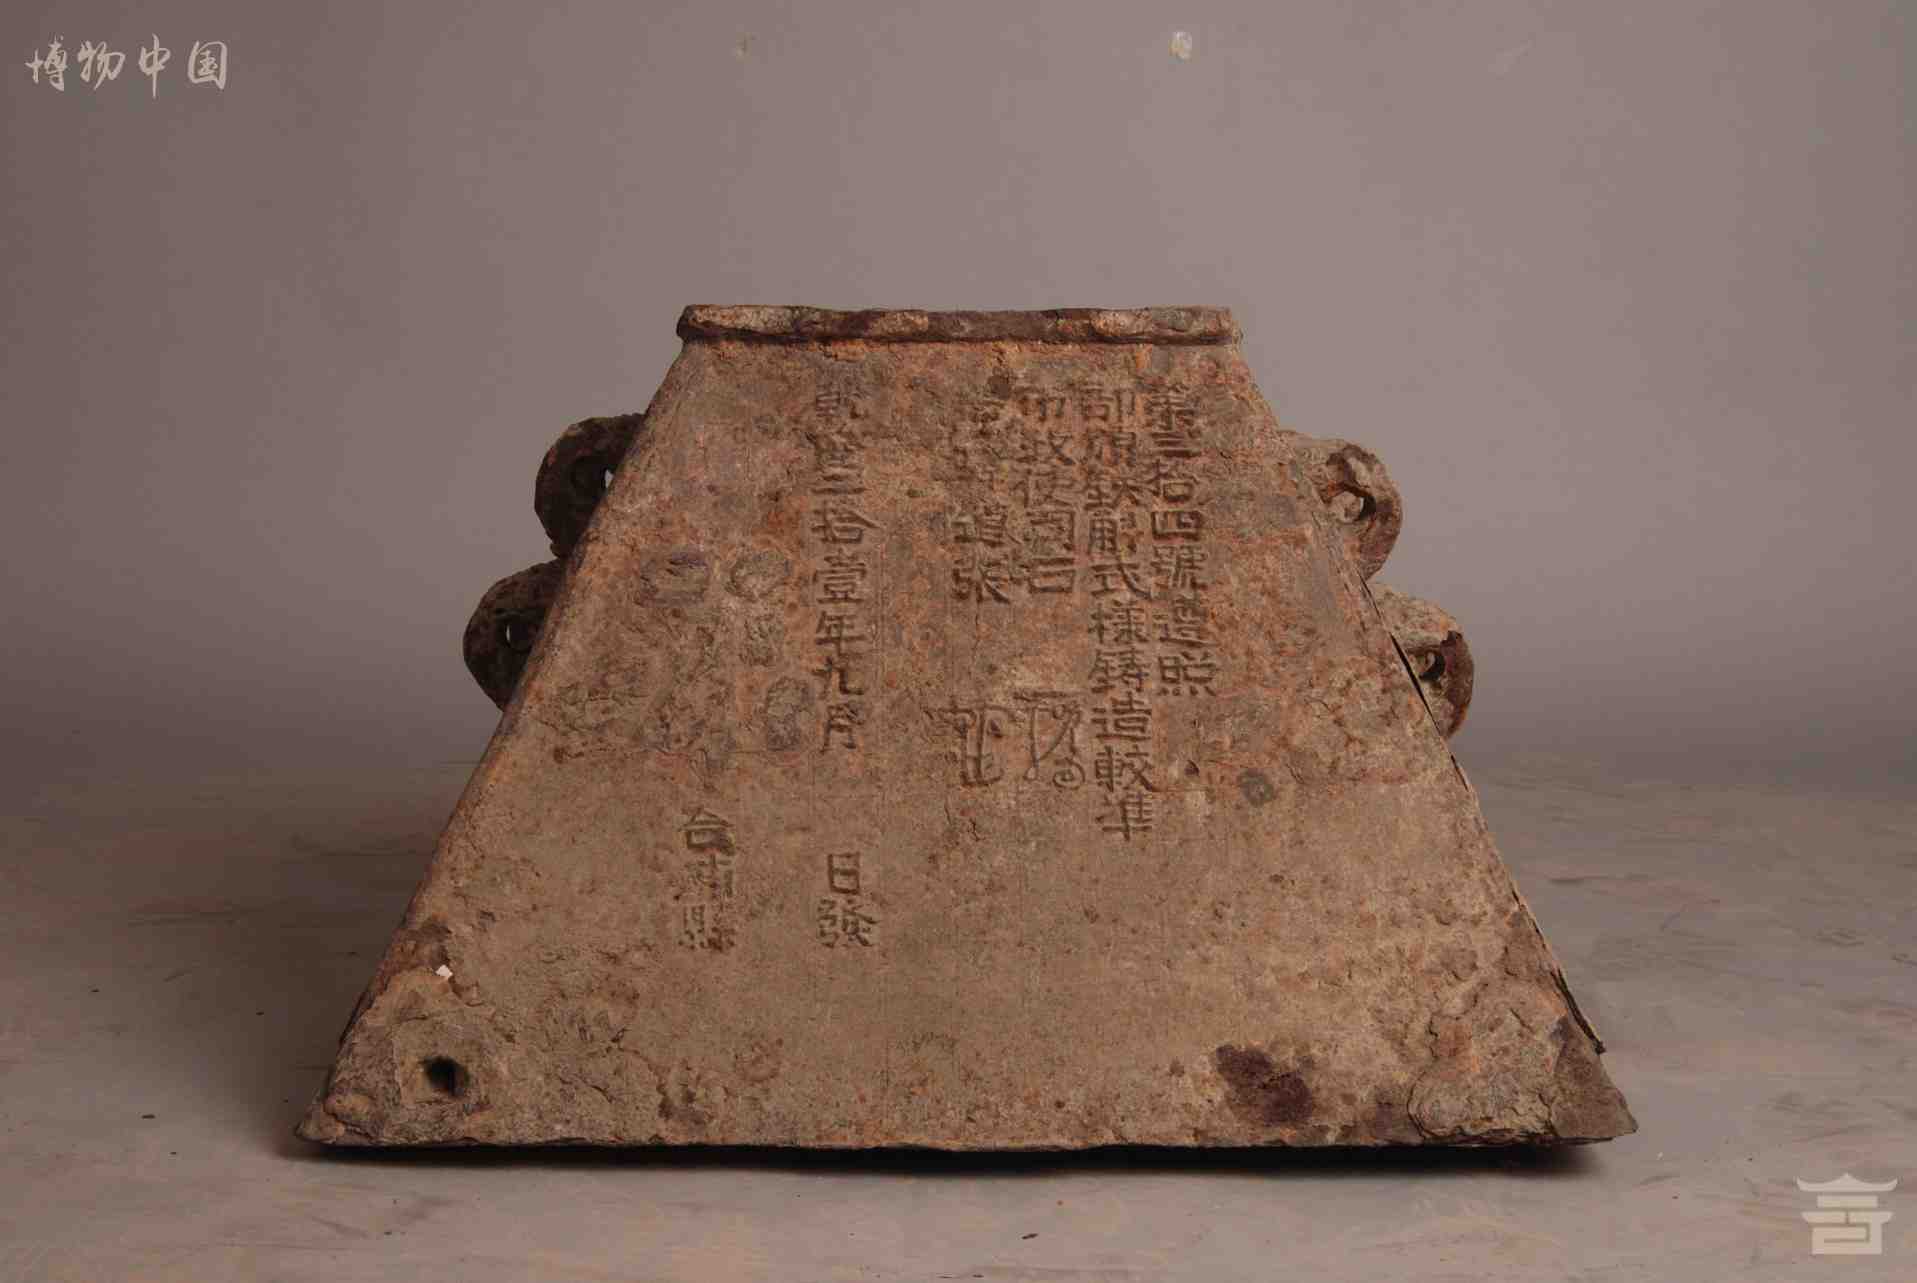 博物中国
第三拾四號遵照
部頒鉄斛式樣鑄造較準
布政使司石
道張
乾隆三拾壹年九月 日發
合